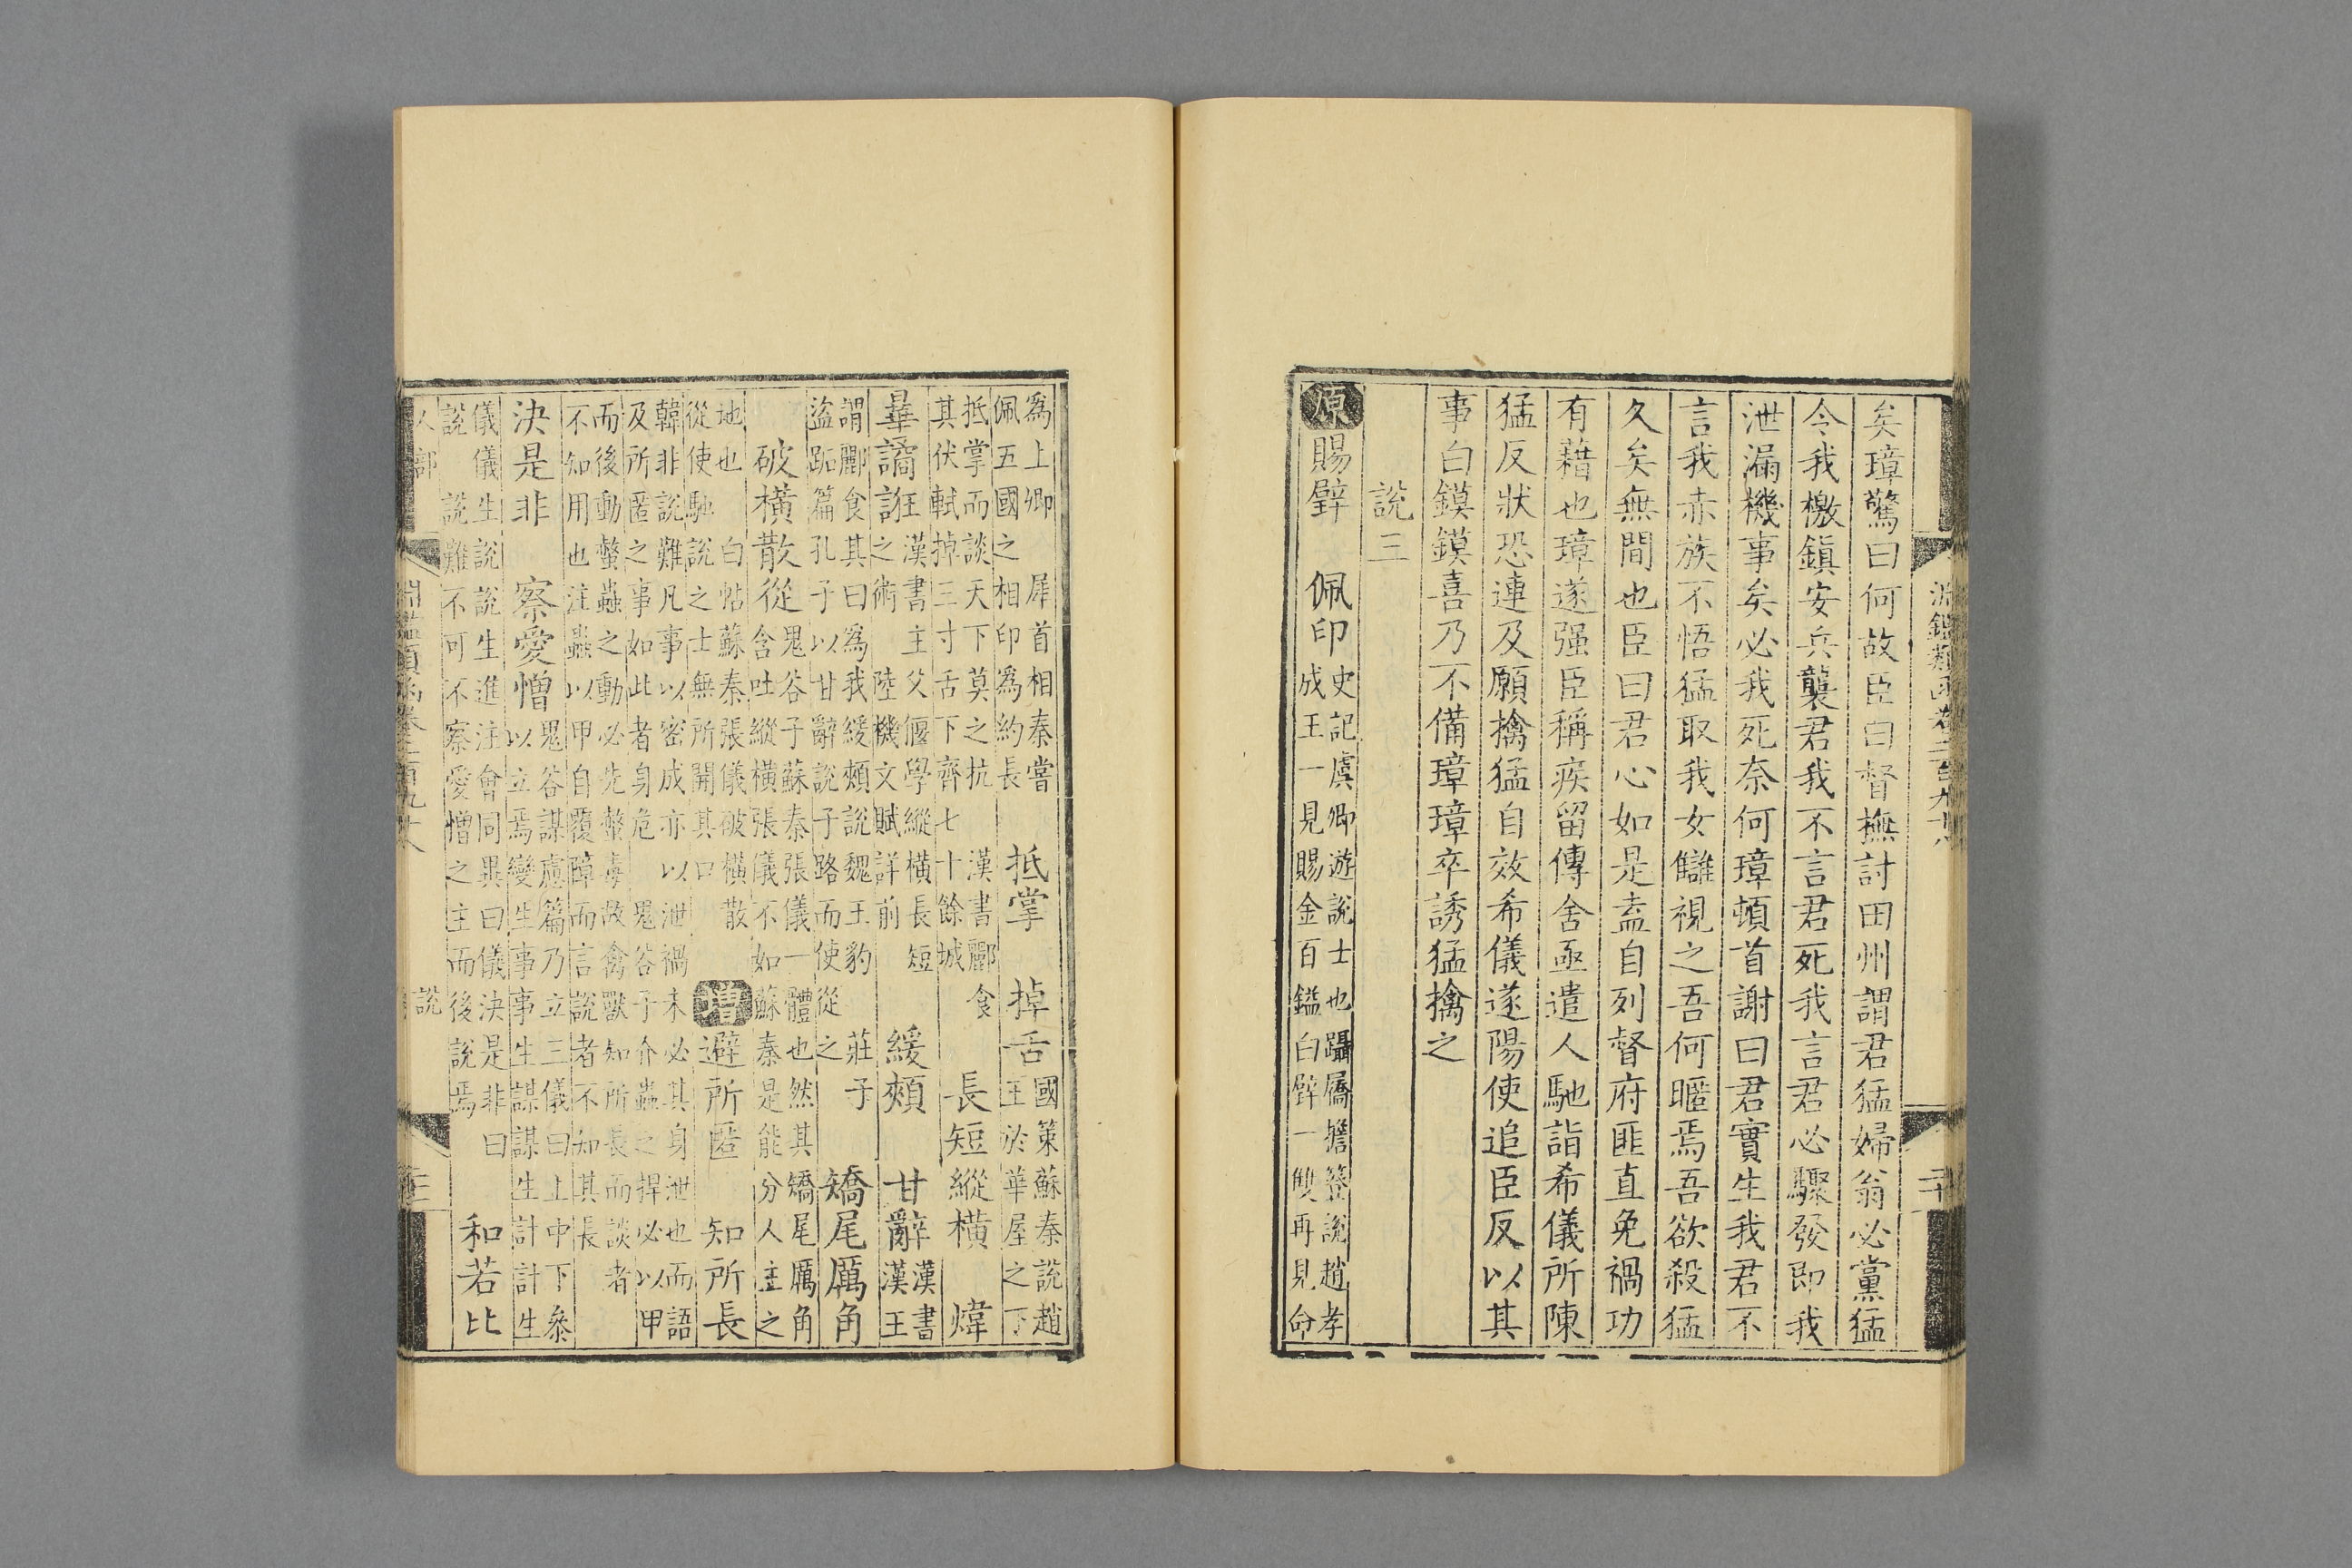 矣璋驚曰何故臣曰督撫討田州謂君猛婦翁必黨猛
令我檄鎮安兵襲君我不言君死我言君必驟發即我
泄漏機事矣必我死奈何璋頓首謝曰君實生我君不
言我赤族不悟猛取我女讎視之吾何暱焉吾欲殺猛
久矣無間也臣曰君心如是盍自列督府匪直免禍功
有藉也璋遂强臣稱疾留傳舍亟遣人馳詣希儀所陳
猛反狀恐連及願擒猛自效希儀遂陽使追臣反以其
事白鏌鏌喜乃不備璋璋卒誘猛擒之
說三
原賜璧
佩印史記虞卿遊說士也躡屩擔簦說趙孝
成王一見賜金百鎰白璧一雙再見命
爲上卿
犀首相秦嘗
佩五國之相印爲約長
抵掌
掉舌國策蘇秦說趙
王於華屋之下
抵掌而談天下莫之抗
漢書酈食
其伏軾掉三寸舌下齊七十餘城
長短縱橫
煒
曅譎誑漢書主父偃學縱橫長短
之術
陸機文賦詳前
緩頰
甘辭漢書漢王
謂酈食其曰爲我緩頰說魏王豹
莊子
盜跖篇孔子以甘辭說子路而使從之
矯尾厲角
破橫散從鬼谷子蘇秦張儀一體也然其矯尾厲角
含吐縱橫張儀不如蘇秦是能分人主之
地也
白帖蘇秦張儀破橫散
從使馳說之士無所開其口
增避所匿
知所長
韓非說難凡事以密成亦以泄禍未必其身泄也而語
及所匿之事如此者身危
鬼谷子介蟲之捍必以甲
而後動螫蟲之動必先螫毒故禽獸知所長而談者
不知用也注蟲以甲自覆障而言說者不知其長
決是非
察愛憎鬼谷謀慮篇乃立三儀曰上中下參
以立焉變生事事生謀謀生計計生
儀儀生說說生進注會同異曰儀決是非曰
說
說難不可不察愛憎之主而後說焉
和若比